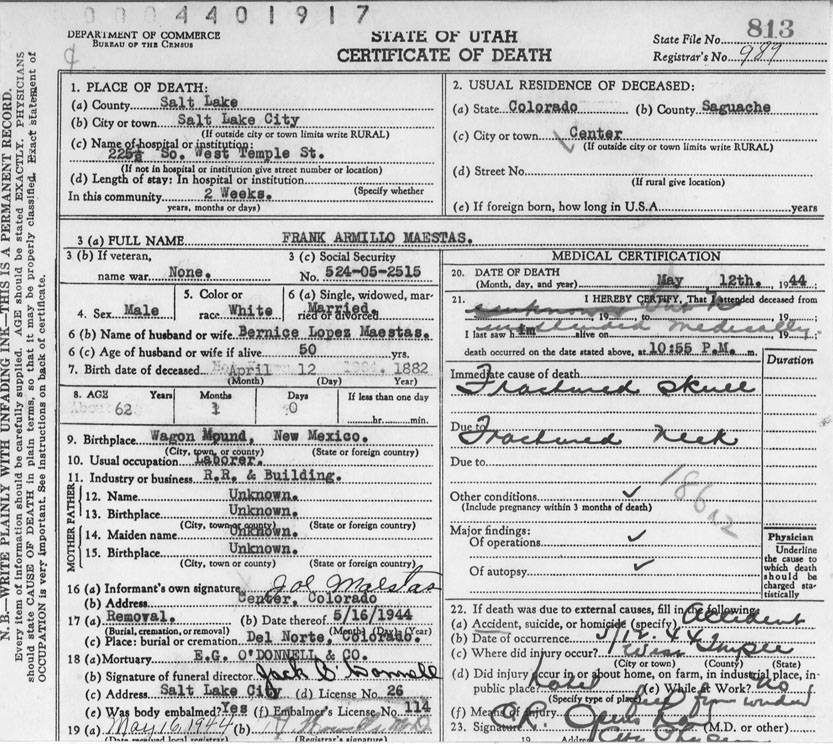 0004401917
DEPARTMENT OF COMMERCE
BUREAU OF THE CENSUS
STATE OF UTAH
CERTIFICATE OF DEATH
State File No. 813
Registrar's No. 989
N. B.—WRITE PLAINLY WITH UNFADING INK—THIS IS A PERMANENT RECORD.
Every item of information should be carefully supplied. AGE should be stated EXACTLY. PHYSICIANS
should state CAUSE OF DEATH in plain terms, so that it may be properly classified. Exact statement of
OCCUPATION is very important. See instructions on back of certificate.
1. PLACE OF DEATH:
(a) County Salt Lake
(b) City or town Salt Lake City
(If outside city or town limits write RURAL)
(c) Name of hospital or institution:
225½ So. West Temple St.
(If not in hospital or institution give street number or location)
(d) Length of stay: In hospital or institution
(Specify whether
In this community 2 Weeks.
years, months or days)
2. USUAL RESIDENCE OF DECEASED:
(a) State Colorado (b) County Saguache
(c) City or town Center
(If outside city or town limits write RURAL)
(d) Street No.
(If rural give location)
(e) If foreign born, how long in U.S.A. years
3 (a) FULL NAME FRANK ARMILLO MAESTAS.
3 (b) If veteran, name war None.
3 (c) Social Security No. 524-05-2515
4. Sex Male
5. Color or race White
6 (a) Single, widowed, married or divorced Married.
6 (b) Name of husband or wife Bernice Lopez Maestas.
6 (c) Age of husband or wife if alive 50 yrs.
7. Birth date of deceased April 12 1882
(Month) (Day) Year)
8. AGE Years Months Days If less than one day
62 1 0 hr. min.
9. Birthplace Wagon Mound, New Mexico.
(City, town, or county) (State or foreign country)
10. Usual occupation Laborer.
11. Industry or business R.R. & Building.
FATHER
12. Name Unknown.
13. Birthplace Unknown.
(City, town or county) (State or foreign country)
MOTHER
14. Maiden name Unknown.
15. Birthplace Unknown.
(City, town or county) (State or foreign country)
16 (a) Informant's own signature Joe Maestas
(b) Address Center, Colorado
17 (a) Removal. (b) Date thereof 5/16/1944
(Burial, cremation, or removal) (Month) (Day) (Year)
(c) Place: burial or cremation Del Norte, Colorado.
18 (a) Mortuary E.G. O'DONNELL & CO.
(b) Signature of funeral director
(c) Address Salt Lake City (d) License No. 26
(e) Was body embalmed? Yes (f) Embalmer's License No. 114
19 (a) May 16, 1944 (b)
(Date received local registrar) (Registrar's signature)
MEDICAL CERTIFICATION
20. DATE OF DEATH
(Month, day, and year) May 12th. 1944
21. I HEREBY CERTIFY, That I attended deceased from
19 to 19
unattended medically.
I last saw him alive on 19
death occurred on the date stated above, at 10:55 P.M. m.
Duration
Immediate cause of death
Fractured Skull
Due to
Fractured Neck
Due to
186a2
Other conditions ✓
(Include pregnancy within 3 months of death)
Major findings:
Of operations ✓
Of autopsy ✓
Physician
Underline
the cause to
which death
should be
charged sta-
tistically
22. If death was due to external causes, fill in the following:
(a) Accident, suicide, or homicide (specify) Accident
(b) Date of occurrence 5/12.44
(c) Where did injury occur? West Temple
(City or town) (County) (State)
(d) Did injury occur in or about home, on farm, in industrial place, in
public place? hotel (e) While at Work? no
(Specify type of place)
(f) Means of injury from window
23. Signature (M.D. or other)
19 Address